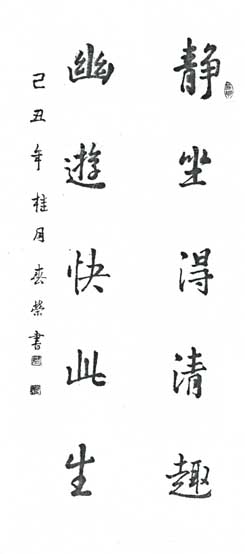 静坐得清趣
幽遊快此生
己丑年桂月春榮書